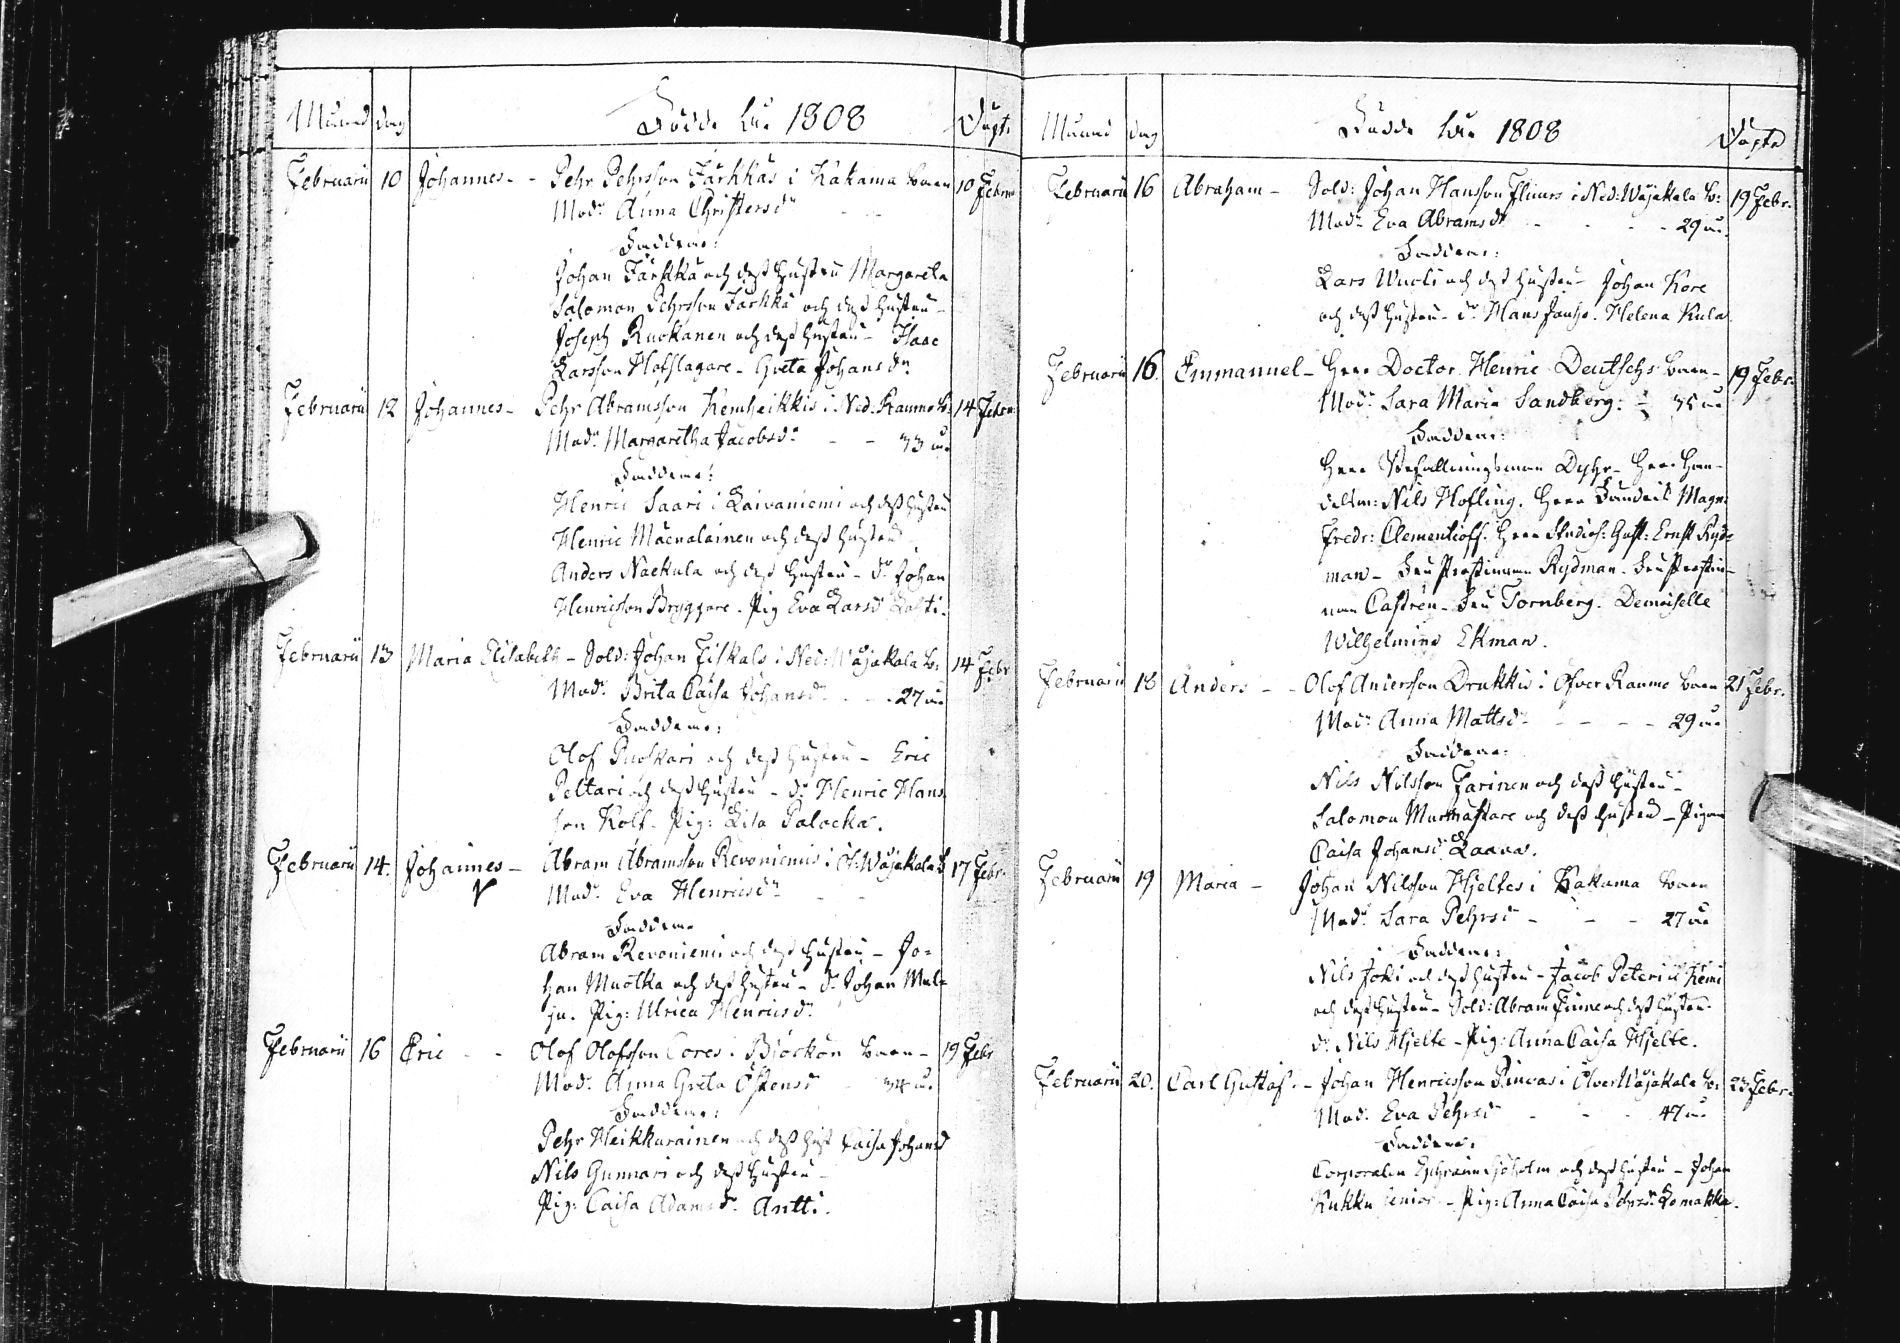 Månad dag Födde åhr 1808 Döpte
Februarii 10 Johannes - - Pehr Pehrsson Färkkäs i Kakama barn 10 Febru
Modr Anna Christersdr
Faddrar:
Johan Färkkä och dess hustru Margareta
Salomon Pehrsson Färkkä och dess hustru -
Joseph Ruokanen och dess hustru - Isaac
Larsson Hofslagare - Greta Johansdr
Februarii 12 Johannes - Pehr Abramsson Kemheikkis i Ned: Raumo b: 14 Febru
Modr Margaretha Jacobsdr - - 33 år
Faddrar:
Henric Saari i Laivaniemi och dess hustru
Henric Mäenalainen och dess hustru
Anders Naekula och dess hustru - dr Johan
Henricsson Bryggare. Pig Eva Larsdr
Februarii 13 Maria Elisabeth - Sold: Johan Fiskals i Ned: Wojakala b: 14 Febr
Modr Brita Caisa Johansdr - - 27 år
Faddrar:
Olof Ruokari och dess hustru - Eric
Peltari och dess hustru - dr Henric Hans
son Kolf. Pig: Lisa Palocka.
Februarii 14. Johannes - Abram Abramsson Revoniemis i Öf: Wojakala b 17 Febr.
Modr Eva Henricsdr - -
Faddrar
Abram Revoniemi och dess hustru - Jo-
han Muotka och dess hustru - dr Johan Mul-
ju. Pig: Ulrica Henricsdr
Februarii 16 Eric - - Olof Olofsson Cores i Björkön barn - 19 Febr
Modr Anna Greta Östensdr - 34 år
Faddrar:
Pehr Heikkurainen och dess hust Caisa Johansd
Nils Gunnari och dess hustru -
Pig: Caisa Adamsdr Antti.
Månad dag Födde åhr 1808 Döpte
Februarii 16 Abraham - Sold: Johan Hansson Flinks i Ned: Wojakala b: 19 Febr.
Modr Eva Abramsdr - - - 29 år
Faddrar:
Lars Wuoti och dess hustru - Johan Kore
och dess hustru - dr Hans Helena Kula
Februarii 16. Emmanuel - Herr Doctor Henric Deutschs barn - 19 Febr.
Modr Sara Maria Sandberg: - 35 år
Faddrar:
Herr Befallningsman Dyhr - Herr Han-
delsm: Nils Hofling. Herr Magn:
Fredr: Clementioff. Herr Studios: Gust: Ernst Ryd-
man - Fru Prostinnan Rydman. Fru Prostin-
nan Castrén - Fru Tornberg. Demoiselle
Wilhelmina Ekman.
Februarii 18 Anders - - Olof Andersson Drukkis i Öfver Raumo barn 21 Febr.
Modr Anna Mattsdr - - - - 29 år
Faddrar:
Nils Nilsson Farinen och dess hustru -
Salomon Murmästare och dess hustru - Pigan
Caisa Johansdr Laana.
Februarii 19 Maria - Johan Nilsson Hjeltes i Kakama barn
Modr Sara Pehrsdr - - - 27 år
Faddrar:
Nils Joki och dess hustru - Jacob Peteri i Kemi
och dess hustru - Sold: Abram Finne och dess hustru
dr Nils Hjelte - Pig: Anna Caisa Hjelte.
Februarii 20. Carl Gustaf. - Johan Henricsson Rinvas i Öfver Wojakala b: 23 Febr.
Modr Eva Pehrsdr - - - 47 år
Faddrar:
Corporalen Ephraim Sjöholm och dess hustru - Johan
Kukku senior - Pig: Anna Caisa Pehrsdr Lomakka.